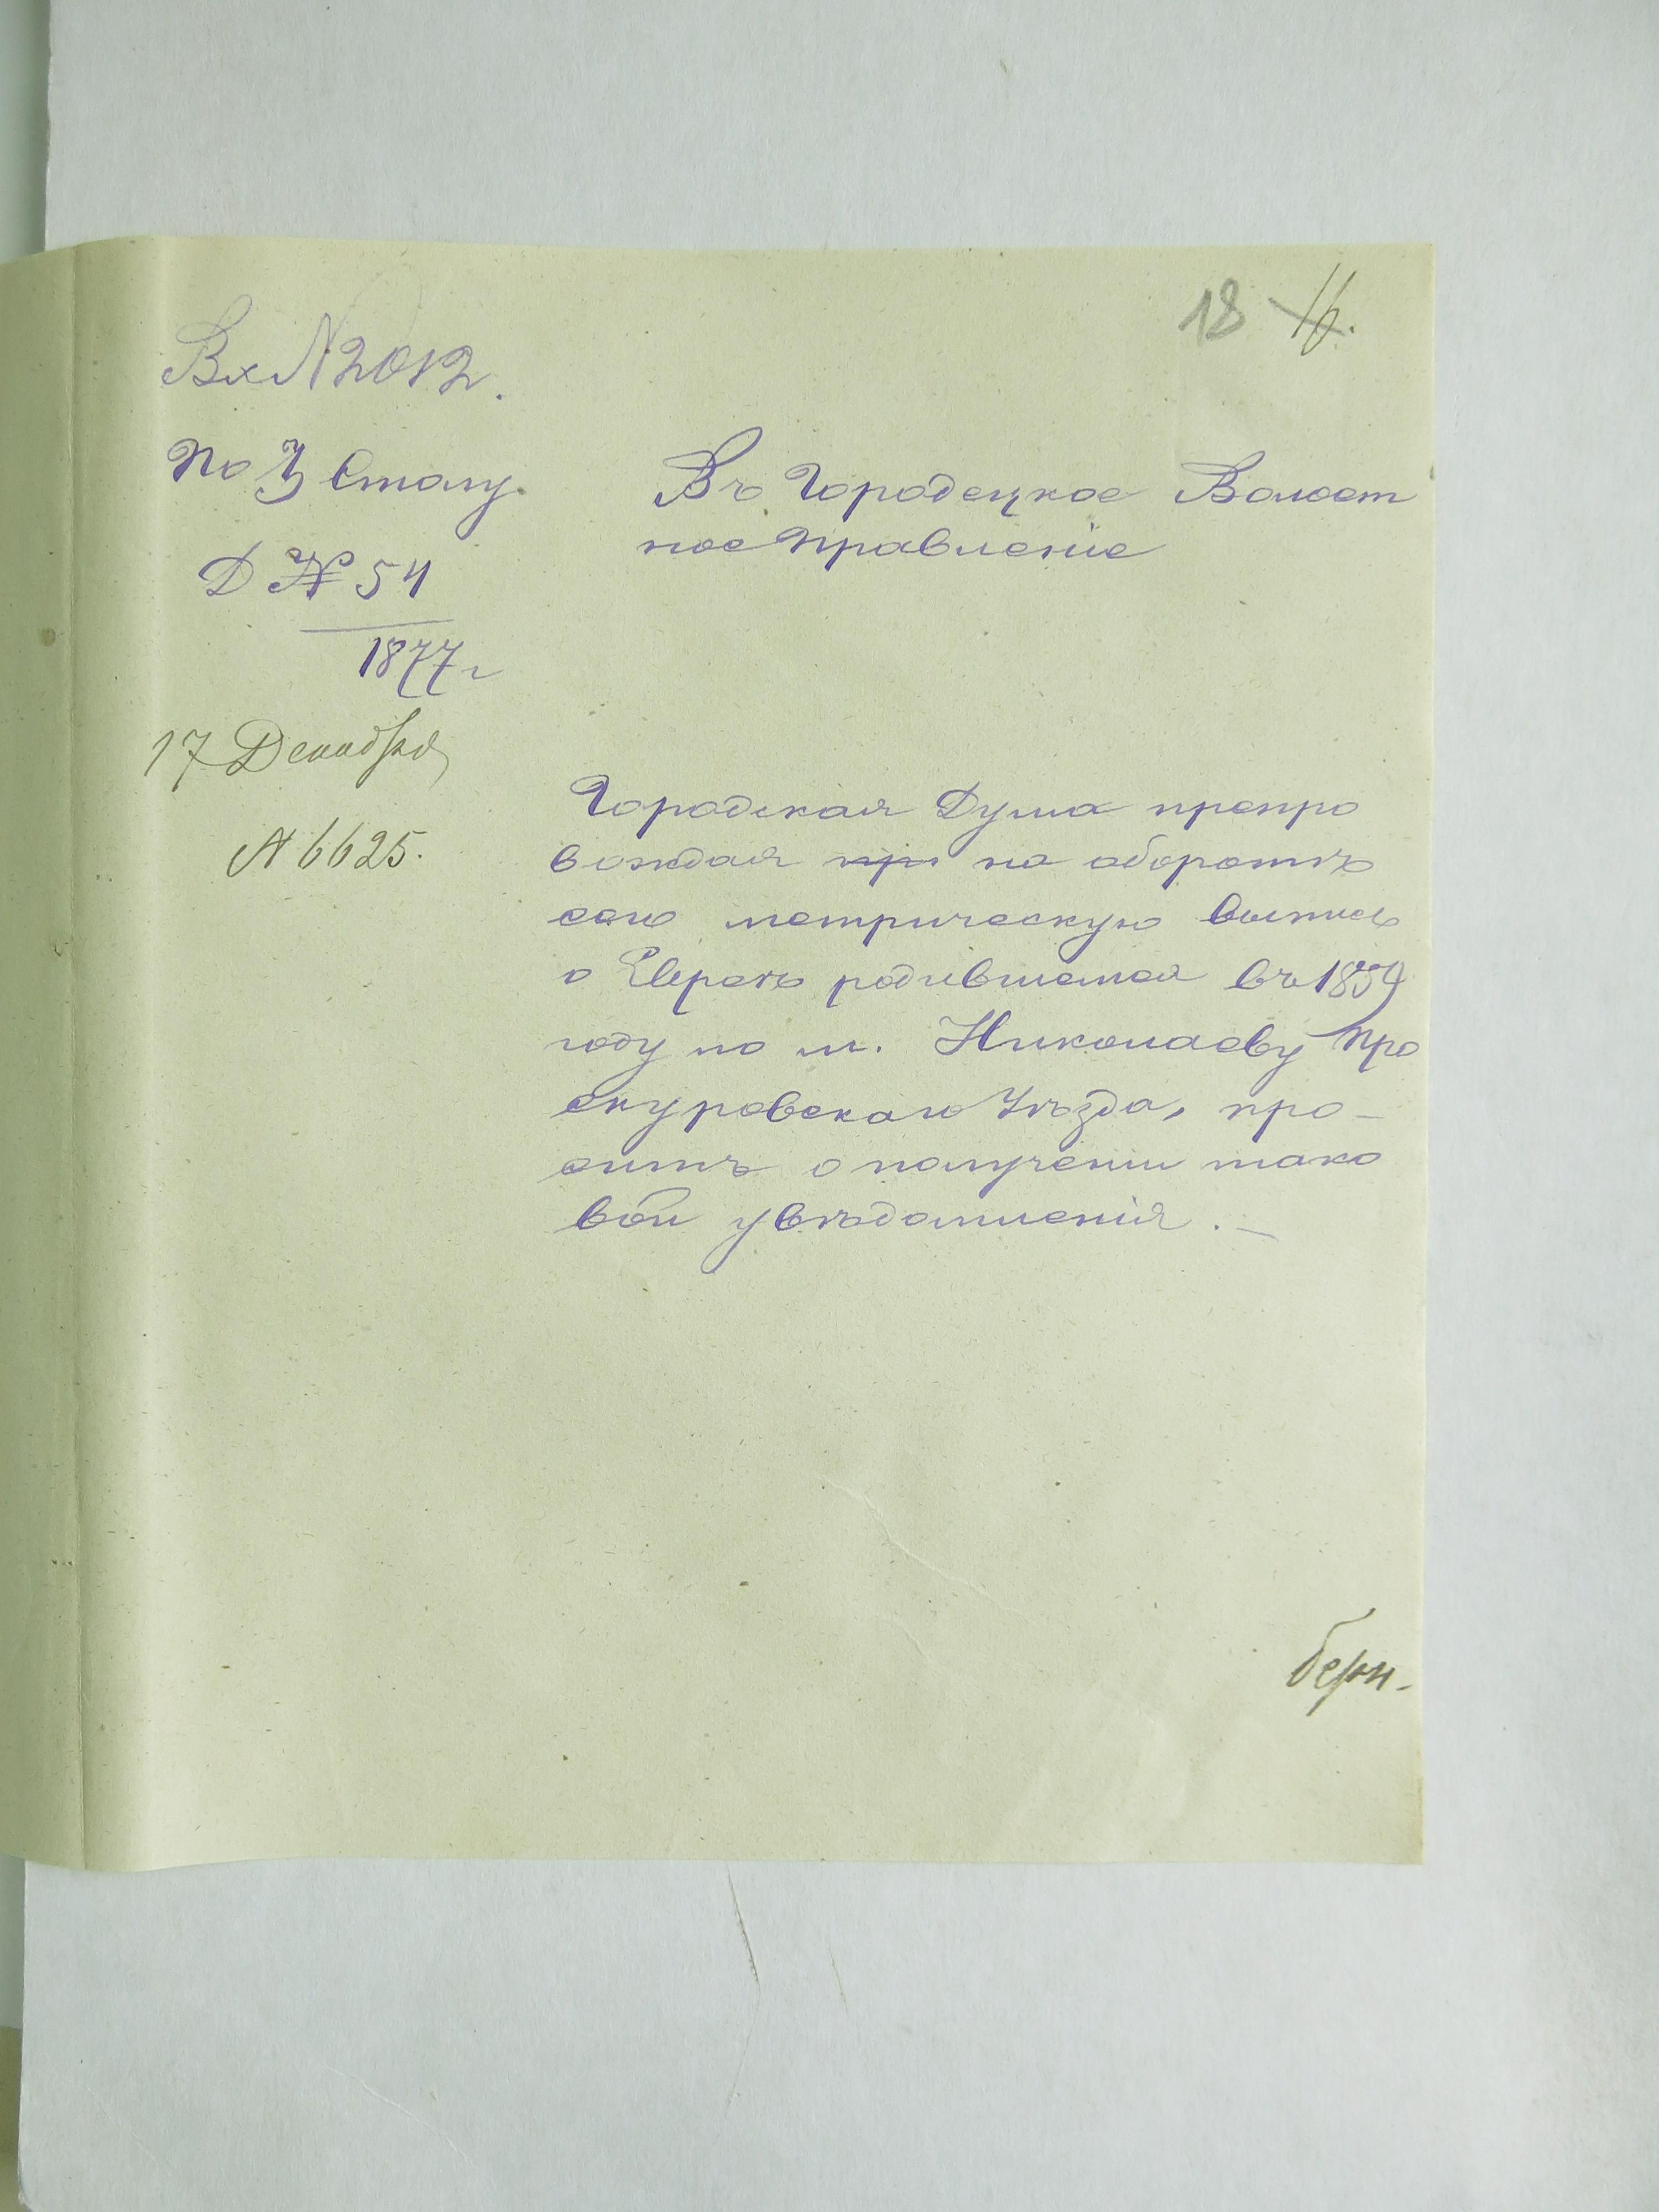 18 16.
Вх № 2012.
По 3 Столу.
Д № 54
1877 г
17 Декабря
№ 6625.
Въ Городецкое Волост
ное Правленіе
Городская Дума препро
вождая при на оборотѣ
сего метрическую выпись
о Евреѣ родившемся въ 1859
году по м. Николаеву Про
скуровскаго Уѣзда, про-
ситъ о полученіи тако
вой увѣдомленія. —